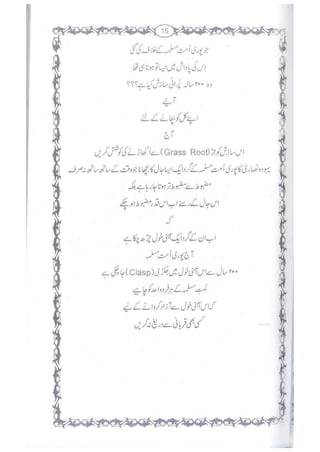 15
جو پوری اُمت مسلمہ کے خلاف کی گئی
اِس کی پاداش میں ایسا تو ہونا ہی تھا
وہ ۲۰۰ سالہ پُرانی سازش کیا ہے؟؟؟
آیے
اپنے کل کو بچانے کے لئے
آج
اس سازش کو جڑ (Grass Root) سے اکھاڑنے کی کوشش کریں
یہود و نصاریٰ کا پوری اُمت مسلمہ کے گرد ایک ایسا جال کا بچھانا جو وقت کے ساتھ ساتھ نہ صرف
مضبوط سے مضبوط تر ہوتا جا رہا ہے بلکہ
اس جال کے رسّے اب اس قدر مضبوط ہو چکے
کہ
اب ان کے گرد ایک آہنی خول چڑھ چکا ہے
آج پوری اُمت مسلمہ
۲۰۰ سال سے اس آہنی خول میں جکڑی (Clasp) جا چکی ہے
اُمتِ مسلمہ کے ہر فردِ واحد کو چاہیے
کہ اس آہنی خول سے آزاد کروانے کے لیے
کسی بھی قربانی سے دریغ نہ کریں